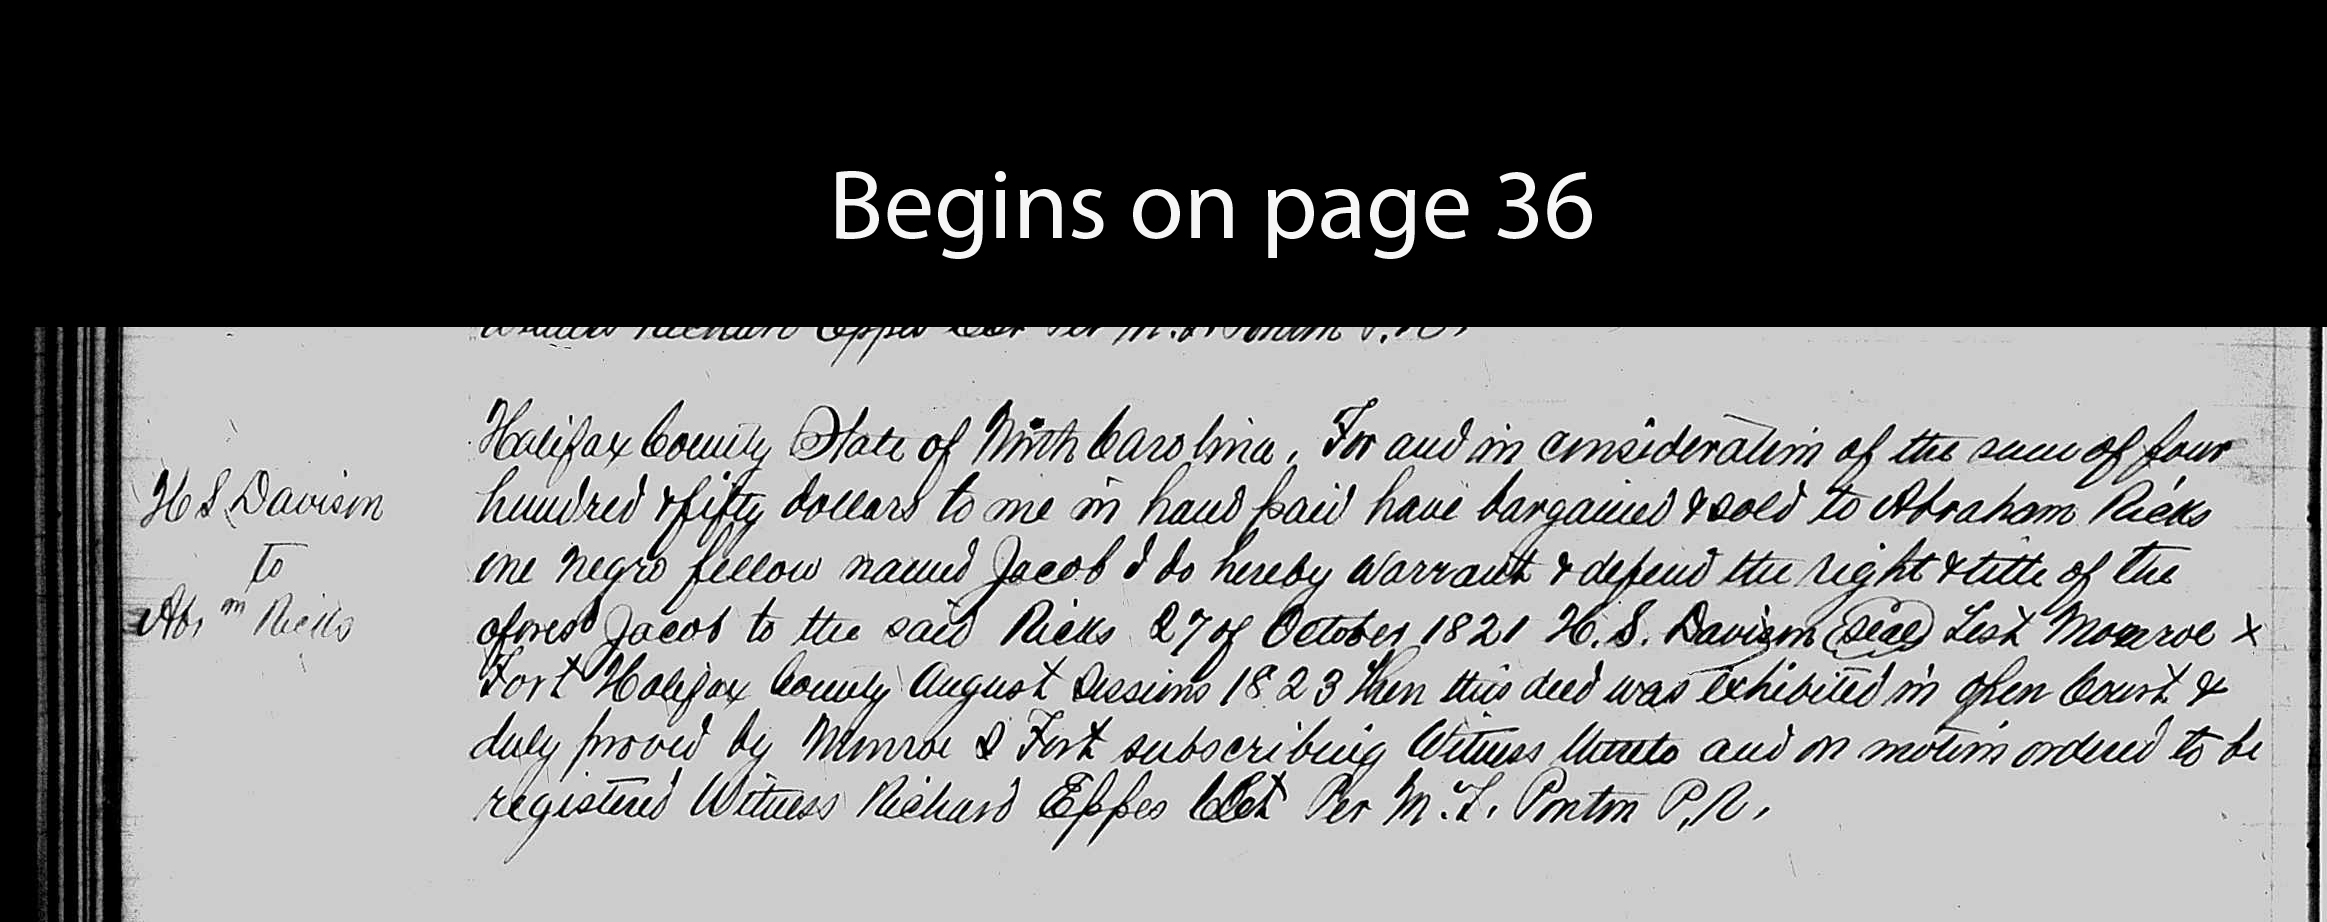 Begins on page 36
Richard Eppes Clk Per M. L. Ponton P.R.
H S Davison
to
Abr,m Ricks
Halifax County State of North Carolina. For and in consideration of the sum of four
hundred & fifty dollars to me in hand paid have bargained & sold to Abraham Ricks
one negro fellow named Jacob I do hereby warrant & defend the right & title of the
aforesd Jacob to the said Ricks 27 of October 1821 H. S. Davison (Seal) Test Monroe X
Fort Halifax County August Sessions 1823 then this deed was exhibited in open Court &
duly proved by Monroe & Fort subscribing Witness thereto and on motion ordered to be
registered Witness Richard Eppes Clk Per M. L. Ponton P.R.